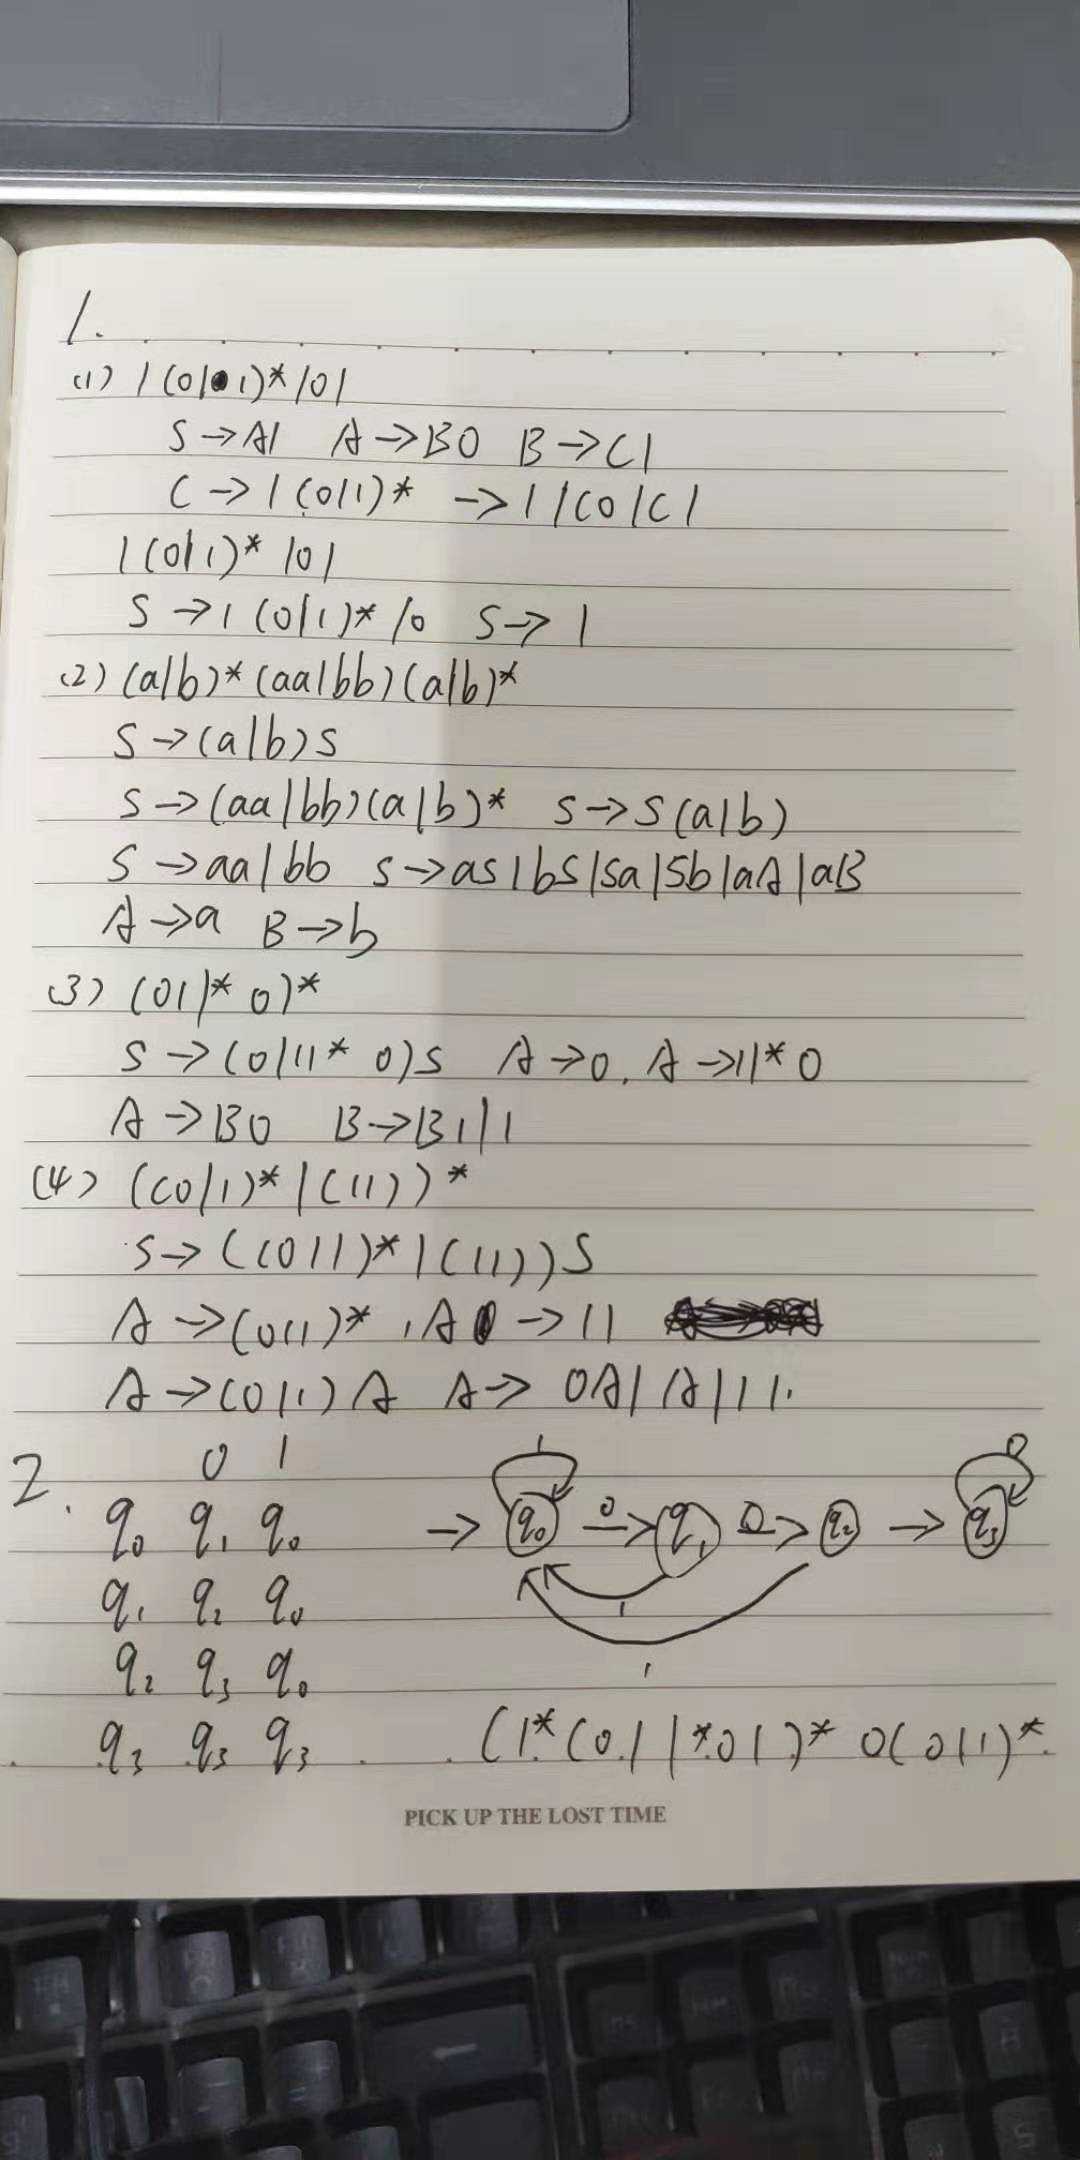 1.
(1) 1(0|1)*101
S→A1 A→B0 B→C1
C→1(0|1)* →1|C0|C1
1(0|1)*101
S→1(0|1)*10 S→1
(2) (a|b)*(aa|bb)(a|b)*
S→(a|b)S
S→(aa|bb)(a|b)* S→S(a|b)
S→aa|bb S→aS|bS|Sa|Sb|aA|aB
A→a B→b
(3) (01|* 0)*
S→(0|11* 0)S A→0, A→11*0
A→B0 B→B1|1
(4) ((0|1)*|(11))*
S→((011)*|(11))S
A→(011)*, A→11
A→(0|1)A A→0A|1A|11.
2. 0 1
q0 q1 q0 → q0 0 → q1 0 → q2 → q3 1 0
q1 q2 q0 1
q2 q3 q0 1
q3 q3 q3 (1*(01|*01)* 0(011)*
PICK UP THE LOST TIME